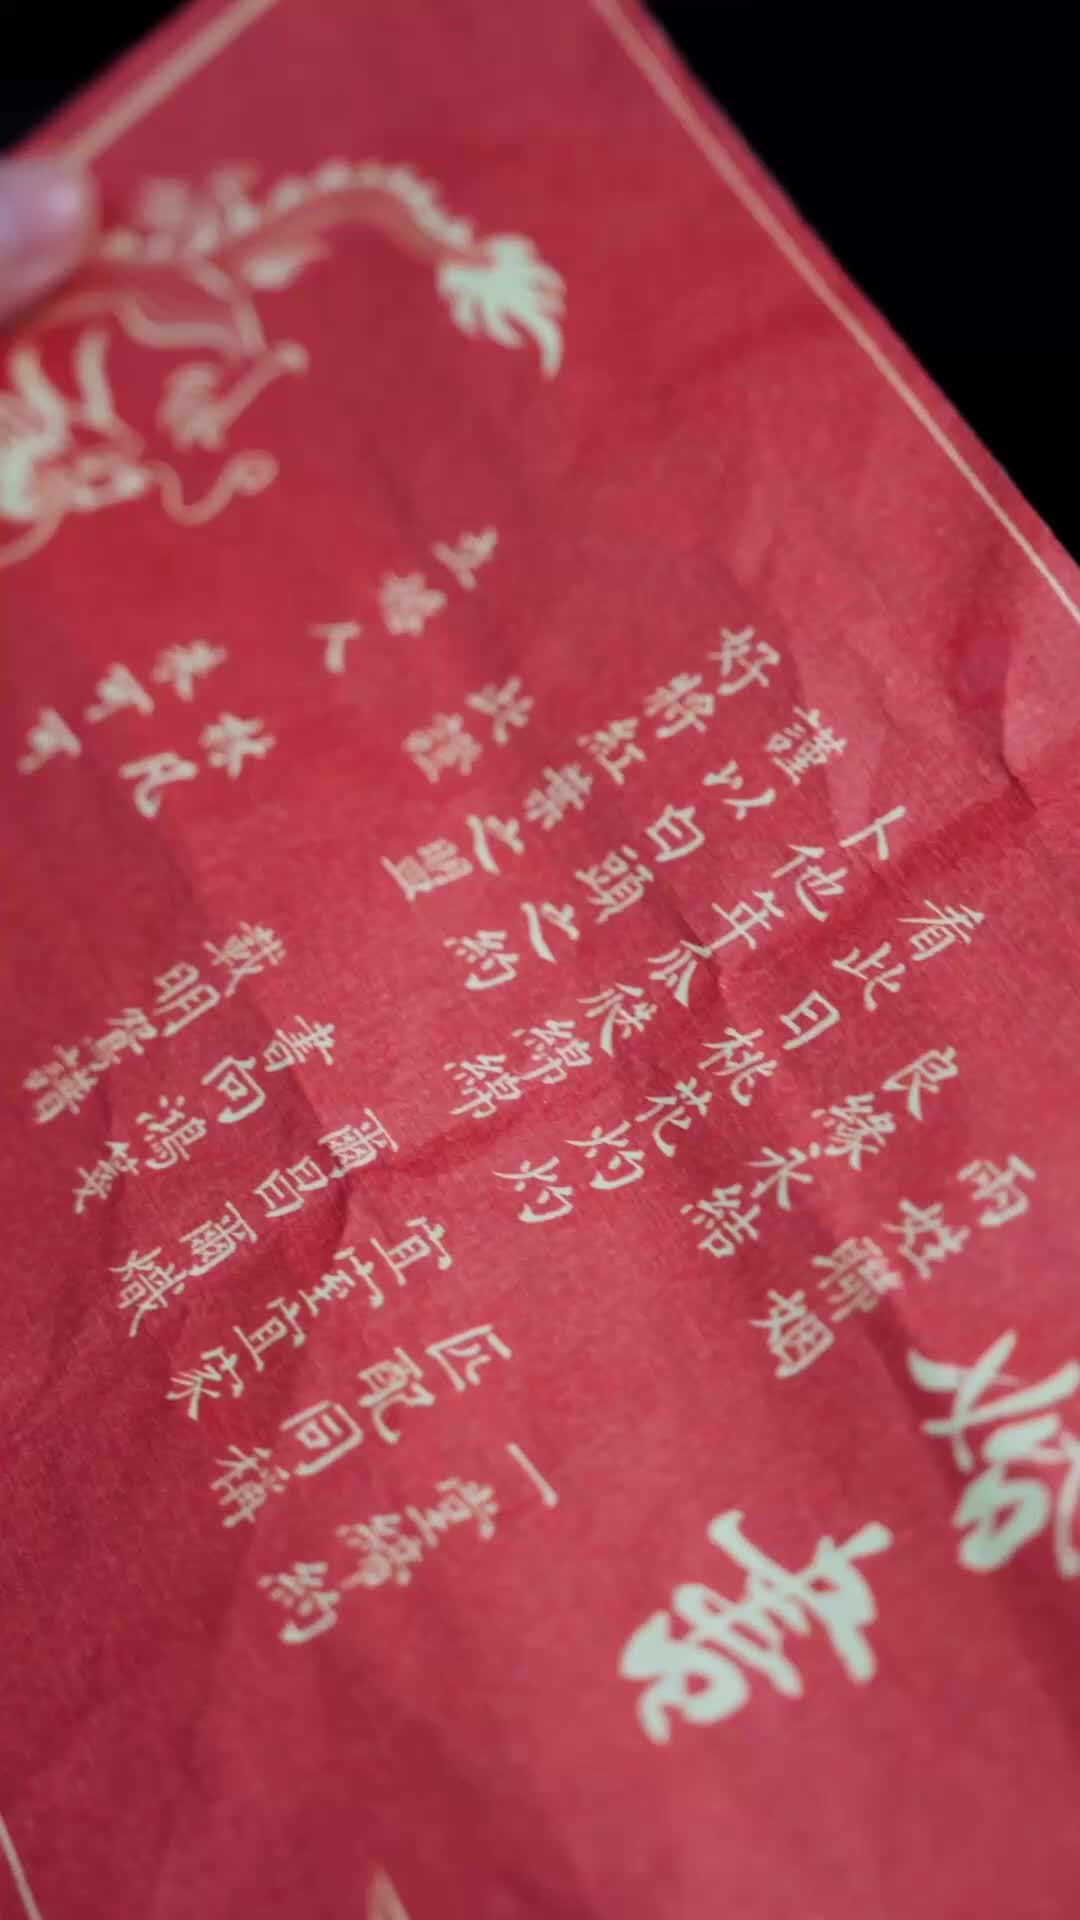 婚書
兩姓聯姻 一堂締約
良緣永結 匹配同稱
看此日桃花灼灼 宜室宜家
卜他年瓜瓞綿綿 爾昌爾熾
謹以白頭之約 書向鴻箋
好將紅葉之盟 載明鴛譜
此證
人
凡
可可